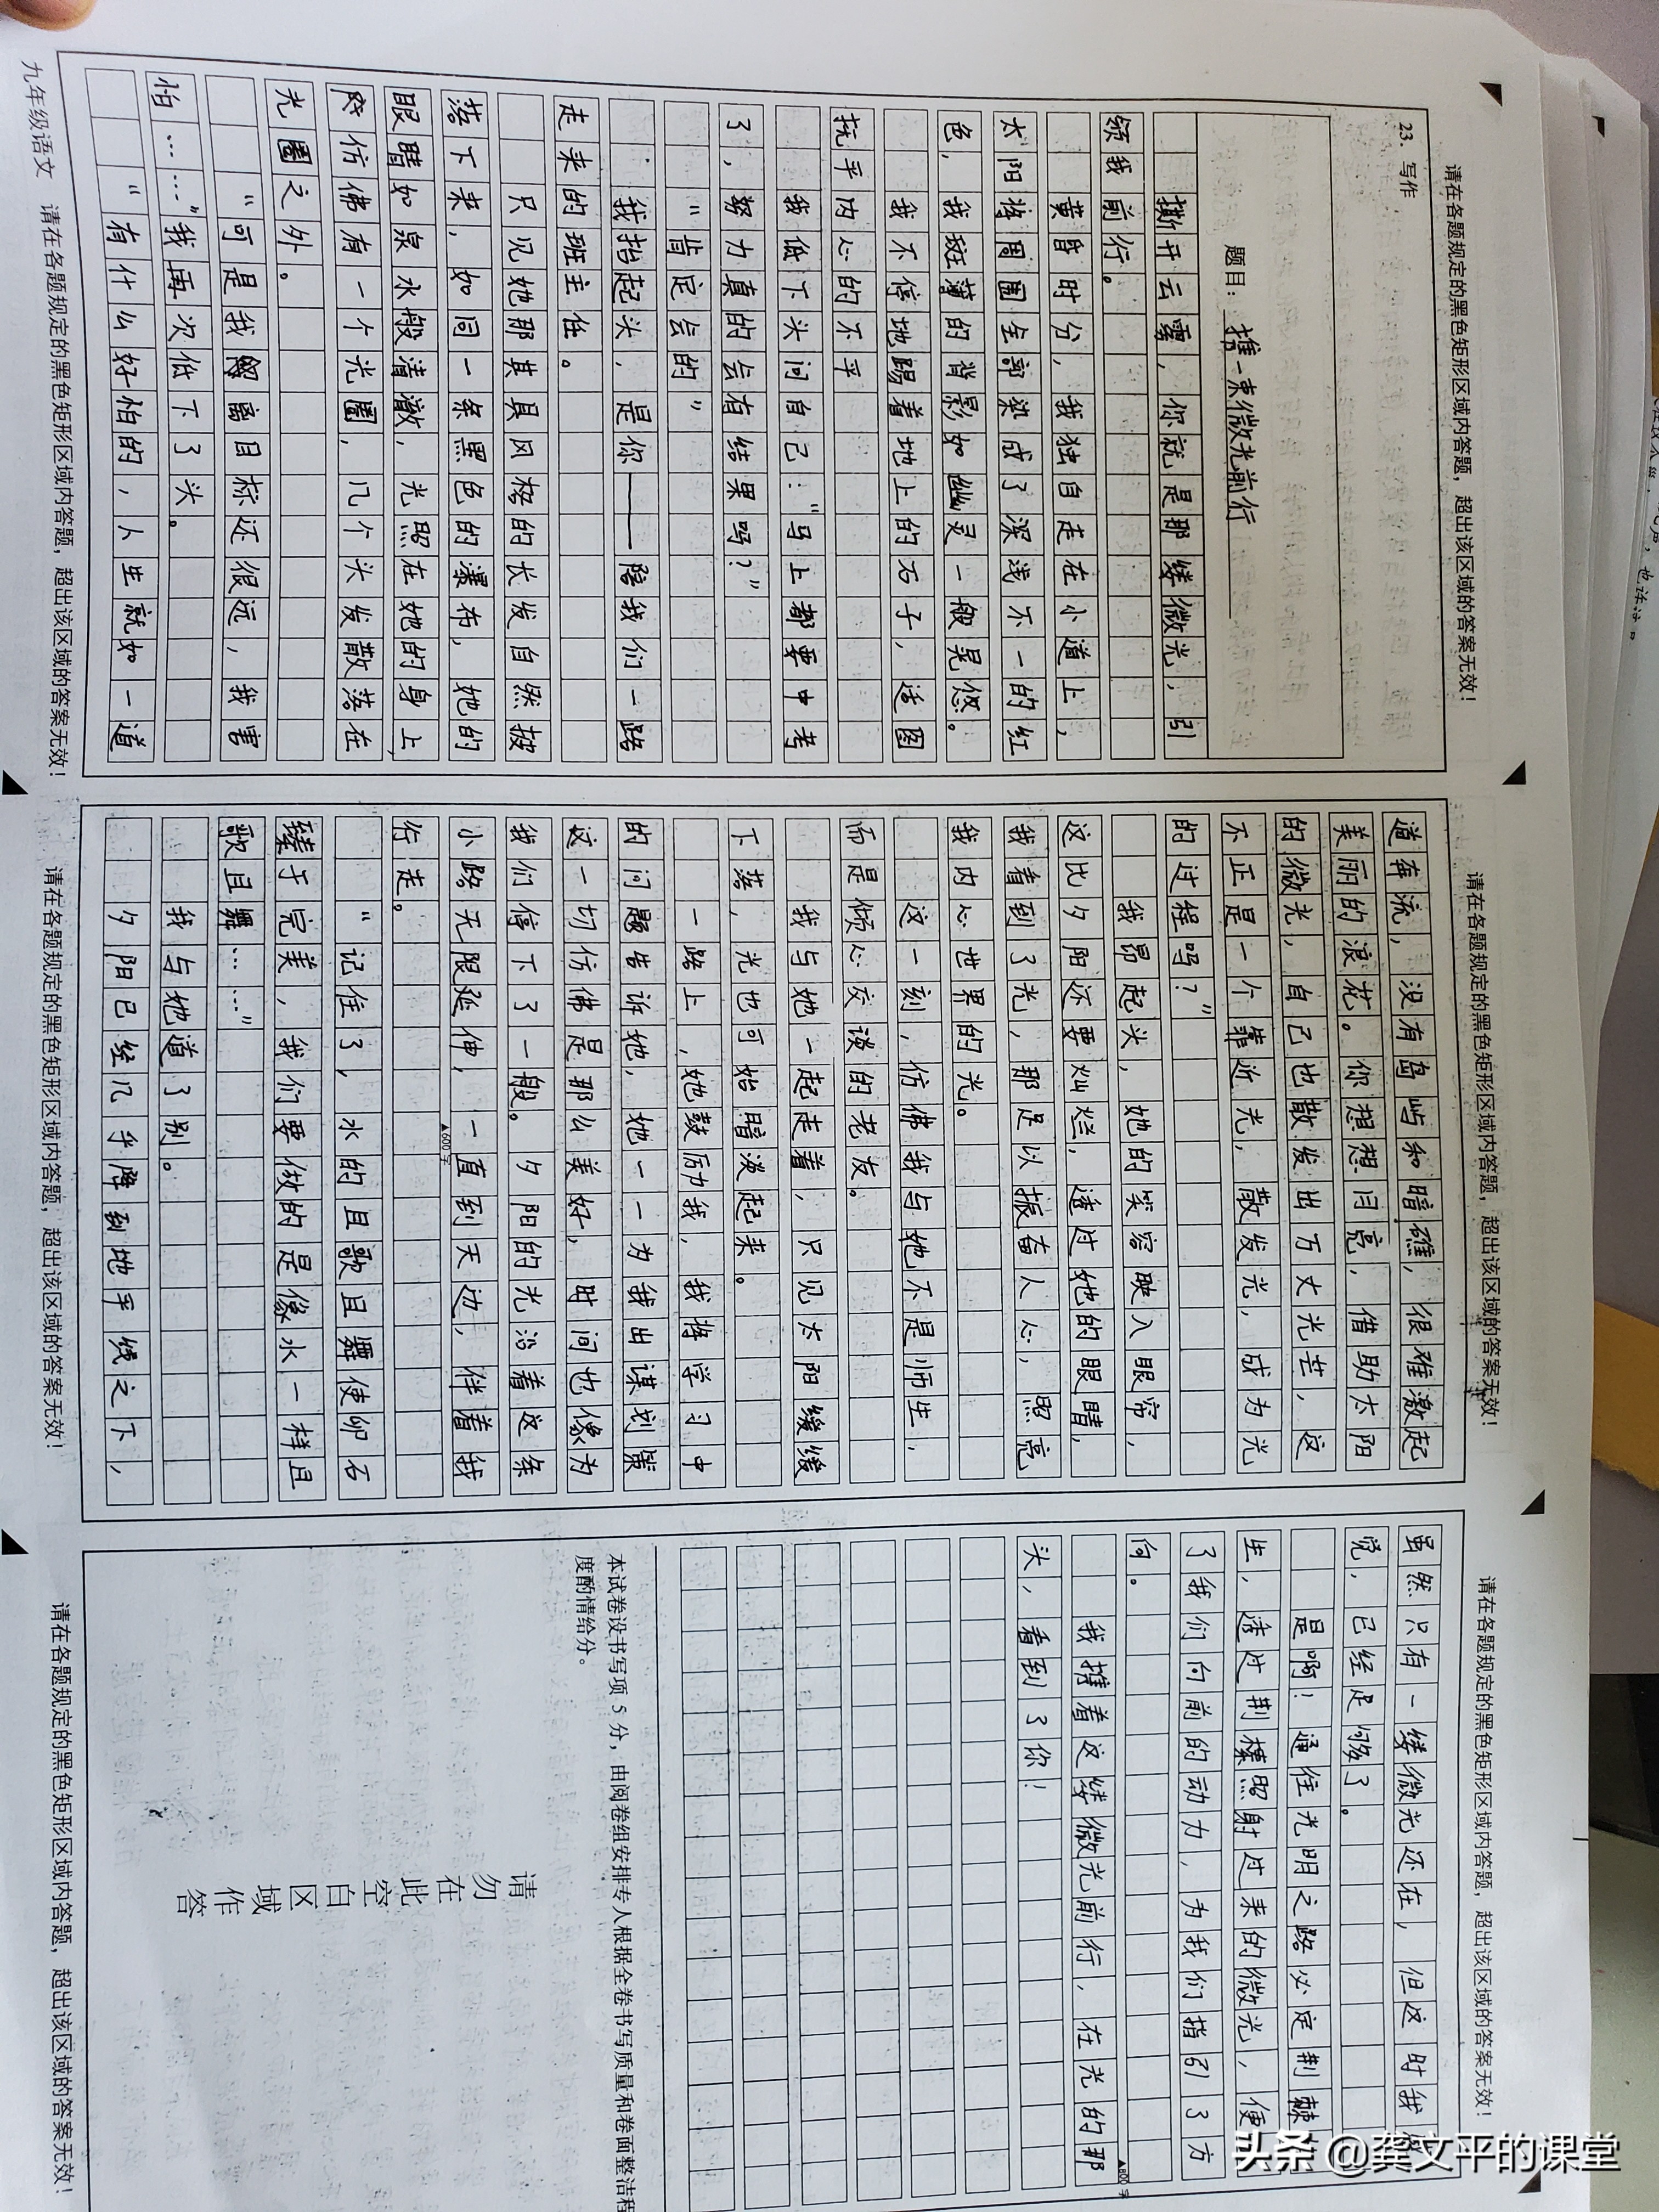 请在各题规定的黑色矩形区域内答题，超出该区域的答案无效！
23. 写作
题目：携一束微光前行
撕开云雾，你就是那缕微光，引
领我前行。
黄昏时分，我独自走在小道上，
太阳将周围全部染成了深浅不一的红
色，我斑薄的背影如幽灵一般晃悠。
我不停地踢着地上的石子，适图
抚平内心的不平
我低下头问自己：“马上都要中考
了，努力真的会有结果吗？”
“肯定会的”
我抬起头，是你——陪我们一路
走来的班主任。
只见她那其具风格的长发自然披
落下来，如同一条黑色的瀑布，她的
眼睛如泉水般清澈，光照在她的身上，
仿佛有一个光圈，几个头发散落在
光圈之外。
“可是我离目标还很远，我害
怕……”我再次低下了头。
“有什么好怕的，人生就如一道
九年级语文 请在各题规定的黑色矩形区域内答题，超出该区域的答案无效！
请在各题规定的黑色矩形区域内答题，超出该区域的答案无效！
道奔流，没有岛屿和暗礁，很难激起
美丽的浪花。你想想月亮，借助太阳
的微光，自己也散发出万丈光芒，这
不正是一个靠近光，散发光，成为光
的过程吗？”
我昂起头，她的笑容映入眼帘，
这比夕阳还要灿烂，透过她的眼睛，
我看到了光，那足以振奋人心，照亮
我内心世界的光。
这一刻，仿佛我与她不是师生，
而是倾心交谈的老友。
我与她一起走着，只见太阳缓缓
下落，光也可始暗淡起来。
一路上，她鼓励我，我将学习中
的问题告诉她，她一一为我出谋划策
这一切仿佛是那么美好，时间也像为
我们停下了一般。夕阳的光沿着这条
小路无限延伸，一直到天边，伴着我
▲600字
行走。
“记住了，水的且歌且舞使卵石
臻于完美，我们要做的是像水一样且
歌且舞……”
我与她道了别。
夕阳已经几乎降到地平线之下，
请在各题规定的黑色矩形区域内答题，超出该区域的答案无效！
请在各题规定的黑色矩形区域内答题，超出该区域的答案无效！
虽然只有一缕微光还在，但这时我
觉，已经足够了。
是啊！通往光明之路必定荆棘
生，透过荆棘照射过来的微光，便
了我们向前的动力，为我们指引了方
向。
我携着这缕微光前行，在光的那
▲800字
头，看到了你！
本试卷设书写项5分，由阅卷组安排专人根据全卷书写质量和卷面整洁程
度酌情给分。
请勿在此空白区域作答
请在各题规定的黑色矩形区域内答题，超出该区域的答案无效！
头条 @龚文平的课堂